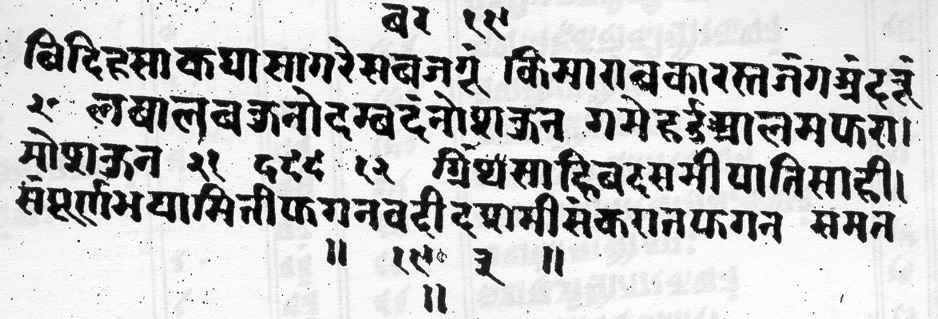 बर १९
बिदिहसाकथासागरेसबजगूं किमाराबकारस्तजंगम्रंदत्रूं
२० लषालबकुनोदम्बदंनोशकुन गमेहर्दुआलमफरा।
मोशकुन २१ ६९९ १२ ग्रिंथसाहिबदसमीपातिसाही।
संपूर्णभयामितीफगनवदीदशमीसंकरातफगन समत
॥ १९० ३ ॥
॥